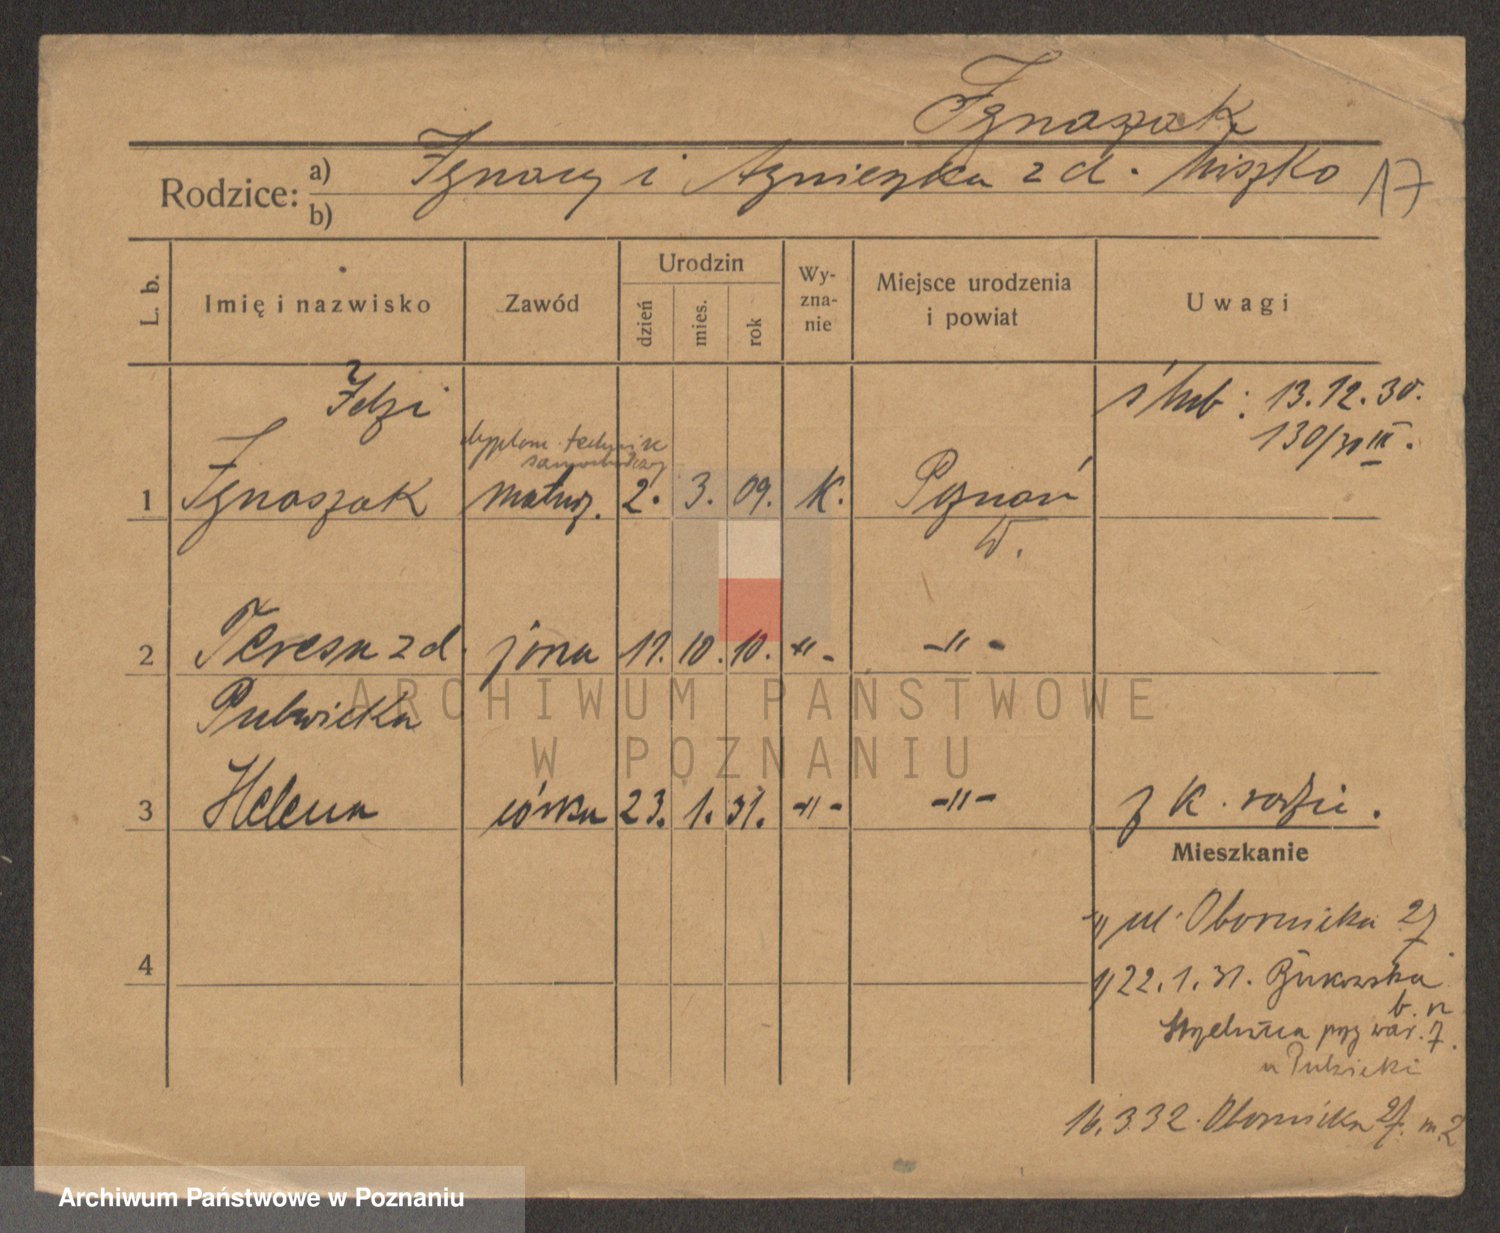 Ignaszak
Rodzice: a) Ignacy i Agnieszka z d. Miszko 17
b)
L. b. Imię i nazwisko Zawód Urodzin dzień mies. rok Wy-zna-nie Miejsce urodzenia i powiat Uwagi
Idzi ślub: 13.12.30.
dyplom. technik 130/30 III.
samochodowy
1 Ignaszak 2. 3. 09. K. Poznań
W.
2 Teresa z d. żona 10. 10. -"- -"-
Pulwicka
3 Helena córka 23. 1. 31. -"- -"- z K. rodzic.
Mieszkanie
ul. Obornicka 27
4
22.1.31. Bukowska
b. n
przy war. 7.
u Pulwicki
16.3.32. Obornicka 27. m. 2
ARCHIWUM PAŃSTWOWE
W POZNANIU
Archiwum Państwowe w Poznaniu